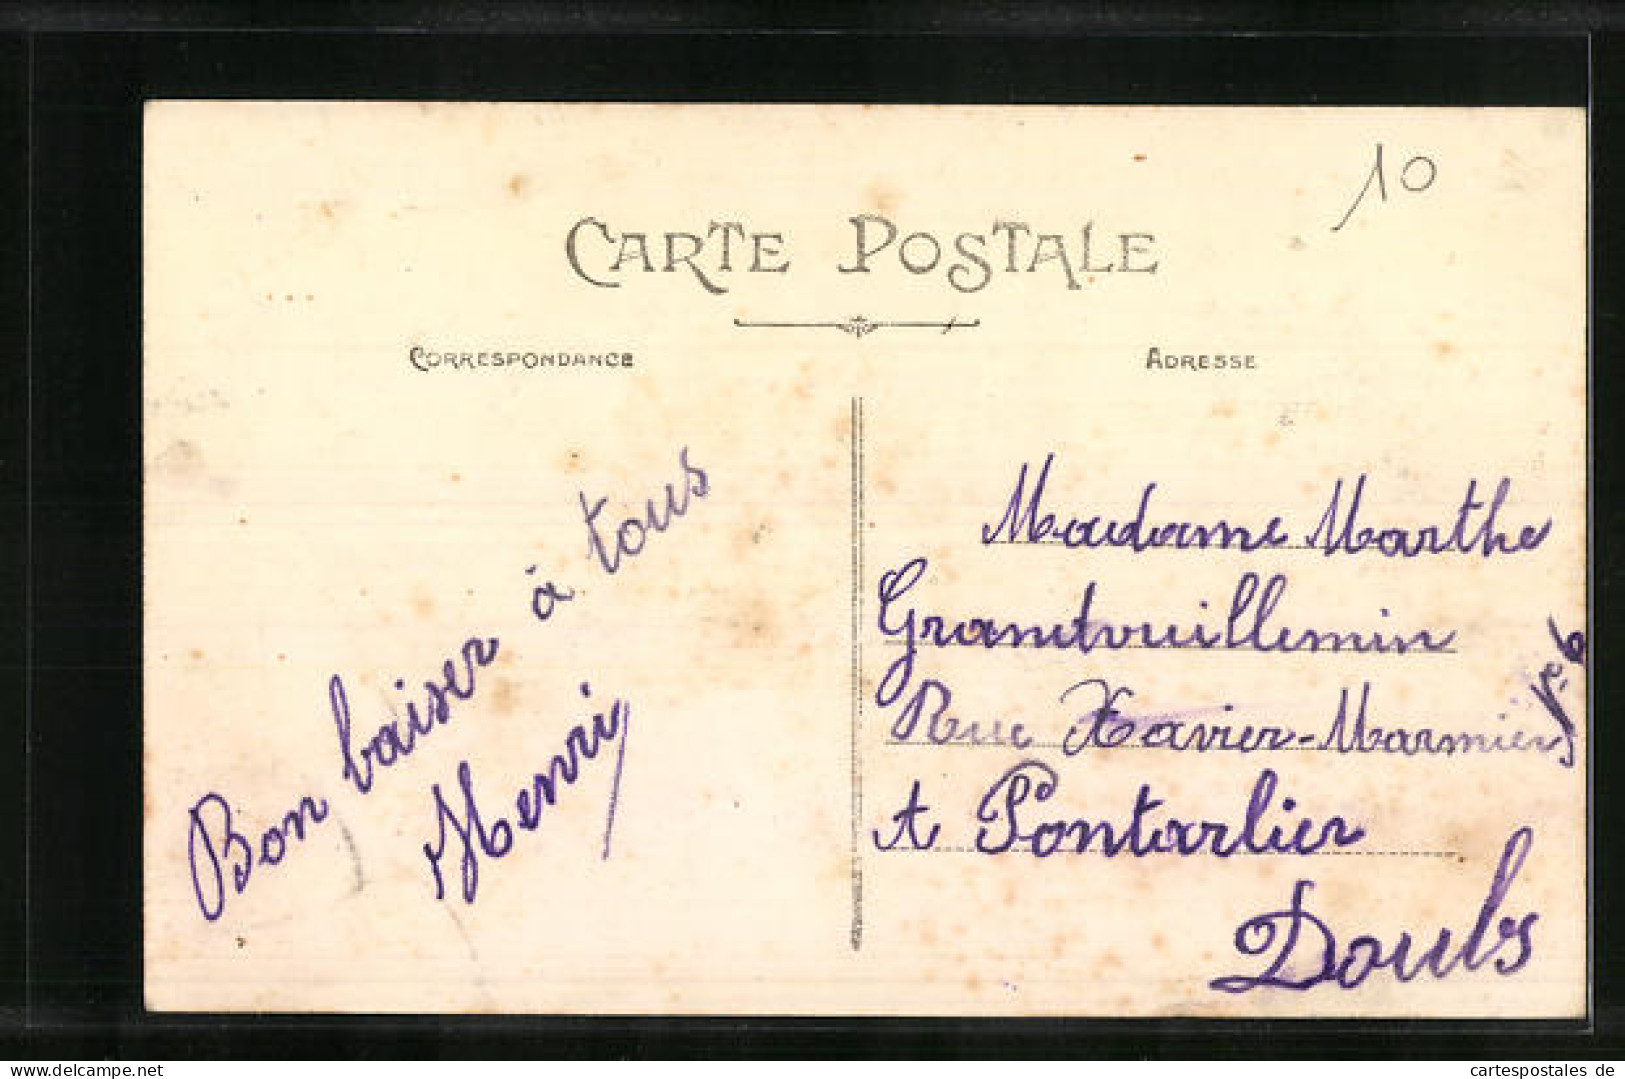 10
CARTE POSTALE
CORRESPONDANCE
ADRESSE
Bon baiser à tous
Henri
Madame Marthe
Grandvuillemin
Rue Xavier-Marmier
A Pontarlier
Doubs
www.delcampe.net
cartespostales de